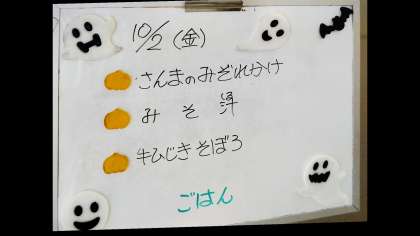 10/2(金)
さんまのみぞれかけ
みそ洋
牛ひじきそぼろ
ごはん